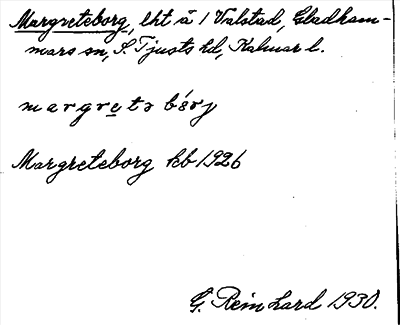 Margreteborg, lht å 1 Valstad, Gladham-
mars sn, S. Tjusts hd, Kalmar l.
margreta bórj
Margreteborg kb 1926
G. Reinhard 1930.